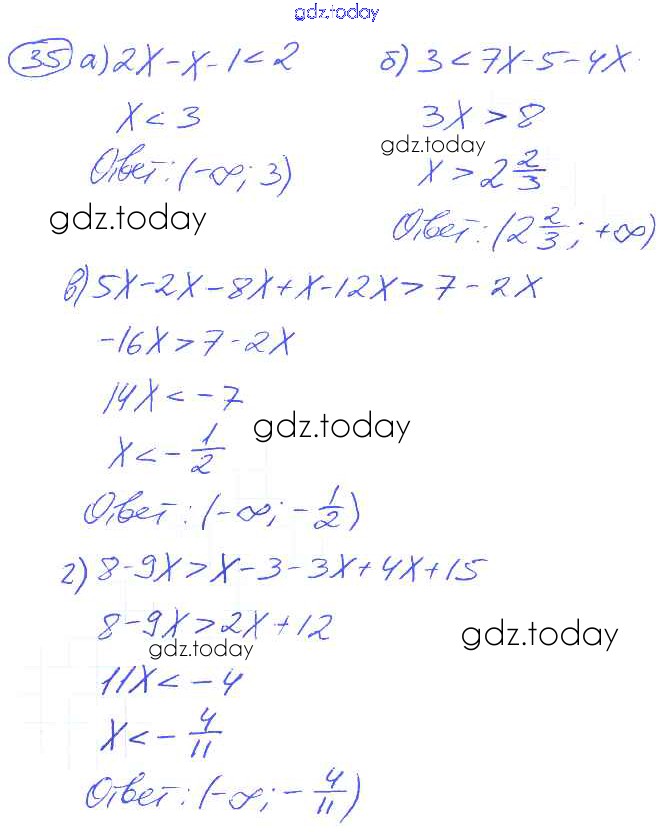 gdz.today
35 а) 2x-x-1<2
x<3
Ответ: (-∞; 3)
б) 3<7x-5-4x
3x>8
gdz.today
x>2 2/3
Ответ: (2 2/3; +∞)
gdz.today
в) 5x-2x-8x+x-12x>7-2x
-16x>7-2x
14x<-7
x<-1/2
gdz.today
Ответ: (-∞; -1/2)
г) 8-9x>x-3-3x+4x+15
8-9x>2x+12
gdz.today
gdz.today
11x<-4
x<-4/11
Ответ: (-∞; -4/11)